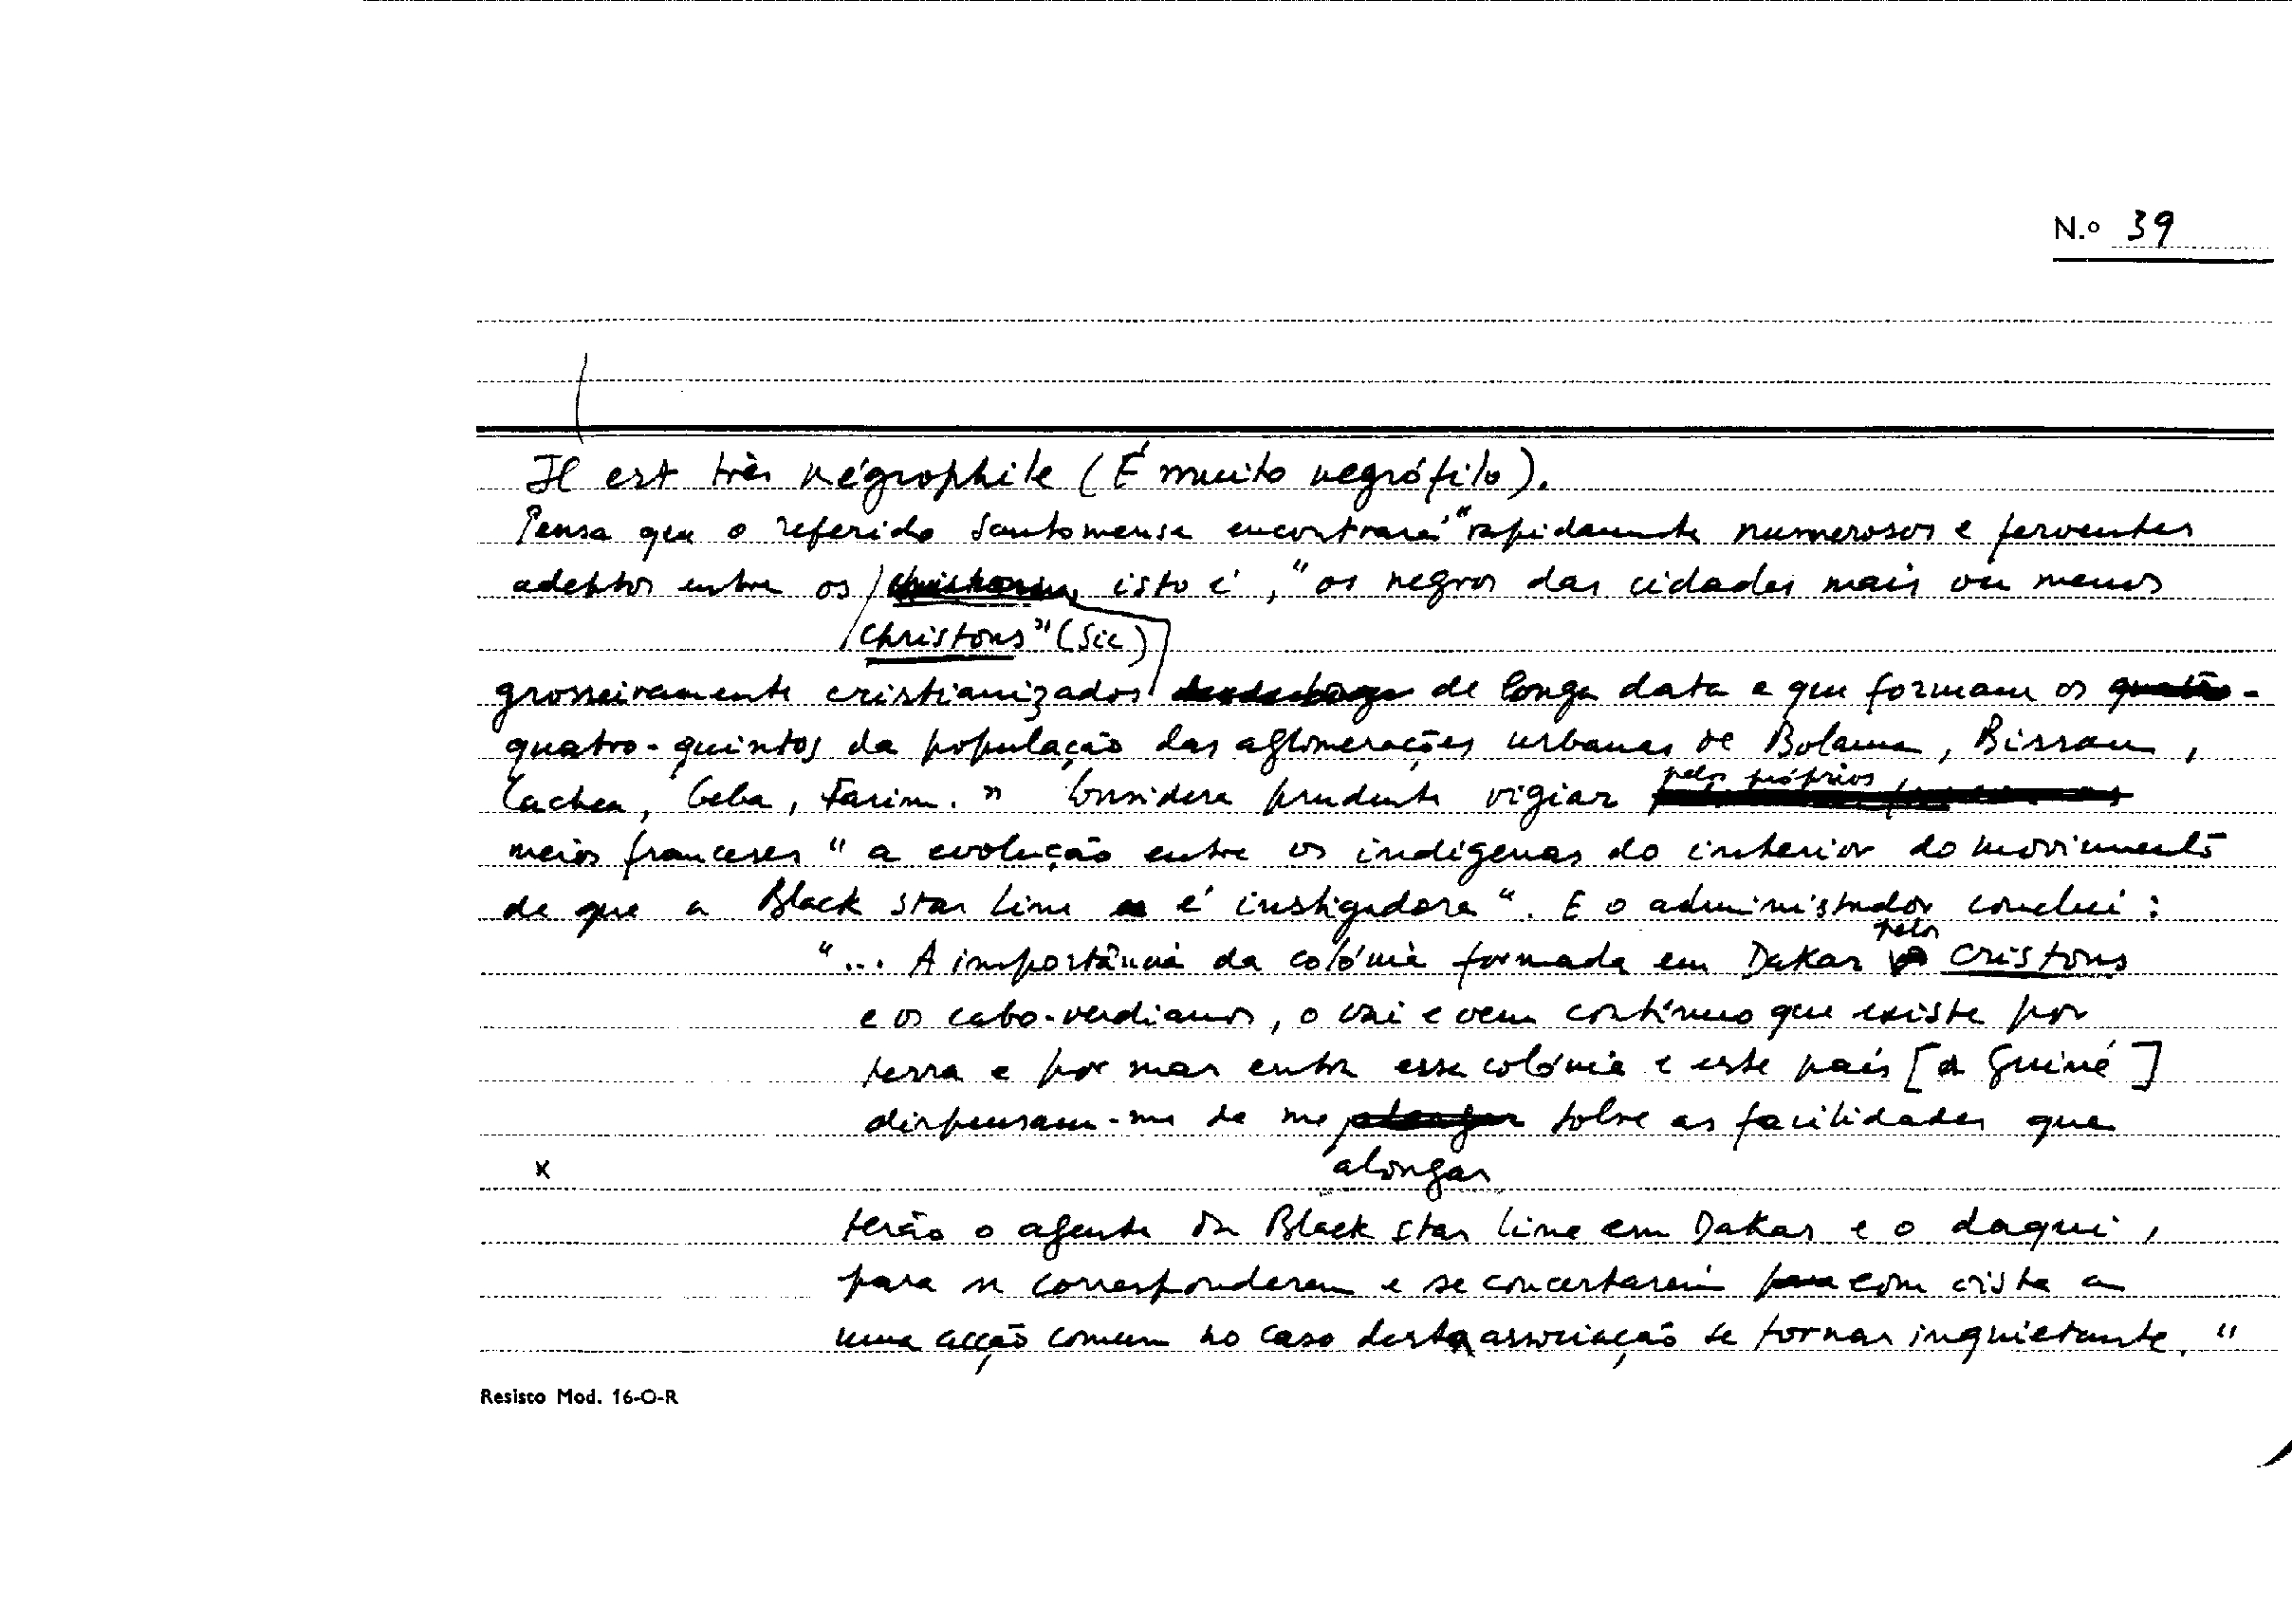 N.º 39
Il est très négrophile (É muito negrófilo).
Pensa que o referido Santomense encontrará "rapidamente numerosos e ferventes
adeptos entre os isto é, "os negros das cidades mais ou menos
christons" (sic)
grosseiramente cristianizados de longa data e que formam os quatro-
quatro-quintos da população das aglomerações urbanas de Bolama, Bissau,
Cacheu, Geba, Farim." Considera prudente vigiar
pelos próprios
meios franceses "a evolução entre os indígenas do interior do movimento
de que a Black Star Line é instigadora". E o administrador conclui:
pelos
"... A importância da colónia formada em Dakar cristons
e os cabo-verdianos, o vai e vem contínuo que existe por
terra e por mar entre essa colónia e este país [a Guiné]
dispensam-me de me alongar sobre as facilidades que
x
alongar
terão o agente da Black Star Line em Dakar e o daqui,
para se corresponderem e se concertarem para com vista a
uma acção comum no caso desta associação se tornar inquietante."
Resisto Mod. 16-O-R